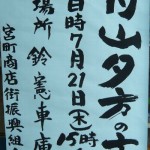 山夕方の
日時7月21日(木)15時
場所 鈴憲車庫
宮町商店街振興組